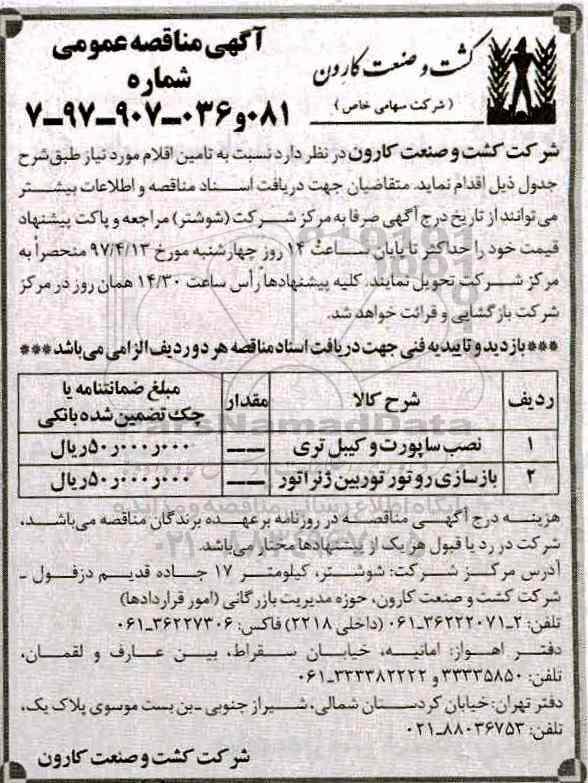 کشت و صنعت کارون
( شرکت سهامی خاص )
آگهی مناقصه عمومی
شماره
۰۸۱و۰۳۶-۹۰۷-۹۷-۷
شرکت کشت و صنعت کارون در نظر دارد نسبت به تامین اقلام مورد نیاز طبق شرح
جدول ذیل اقدام نماید. متقاضیان جهت دریافت اسناد مناقصه و اطلاعات بیشتر
می توانند از تاریخ درج آگهی صرفا به مرکز شرکت (شوشتر) مراجعه و پاکت پیشنهاد
قیمت خود را حداکثر تا پایان ساعت ۱۴ روز چهارشنبه مورخ ۹۷/۴/۱۳ منحصراً به
مرکز شرکت تحویل نمایند. کلیه پیشنهادها رأس ساعت ۱۴/۳۰ همان روز در مرکز
شرکت بازگشایی و قرائت خواهد شد.
***بازدید و تاییدیه فنی جهت دریافت اسناد مناقصه هر دو ردیف الزامی می باشد***
ردیف شرح کالا مقدار مبلغ ضمانتنامه یا
چک تضمین شده بانکی
۱ نصب ساپورت و کیبل تری —— ۵۰ر۰۰۰ر۰۰۰ریال
۲ بازسازی روتور توربین ژنراتور —— ۵۰ر۰۰۰ر۰۰۰ریال
هزینه درج آگهی مناقصه در روزنامه بر عهده برندگان مناقصه می باشد،
شرکت در رد یا قبول هر یک از پیشنهادها مختار می باشد.
آدرس مرکز شرکت: شوشتر، کیلومتر ۱۷ جاده قدیم دزفول -
شرکت کشت و صنعت کارون، حوزه مدیریت بازرگانی (امور قراردادها)
تلفن: ۲-۳۶۲۲۲۰۷۱-۰۶۱ (داخلی ۲۲۱۸) فاکس: ۳۶۲۲۷۳۰۶-۰۶۱
دفتر اهواز: امانیه، خیابان سقراط، بین عارف و لقمان،
تلفن: ۳۳۳۳۵۸۵۰ و ۳۳۳۳۸۲۲۲۲-۰۶۱
دفتر تهران: خیابان کردستان شمالی، شیراز جنوبی - بن بست موسوی پلاک یک،
تلفن: ۸۸۰۳۶۷۵۳-۰۲۱
شرکت کشت و صنعت کارون